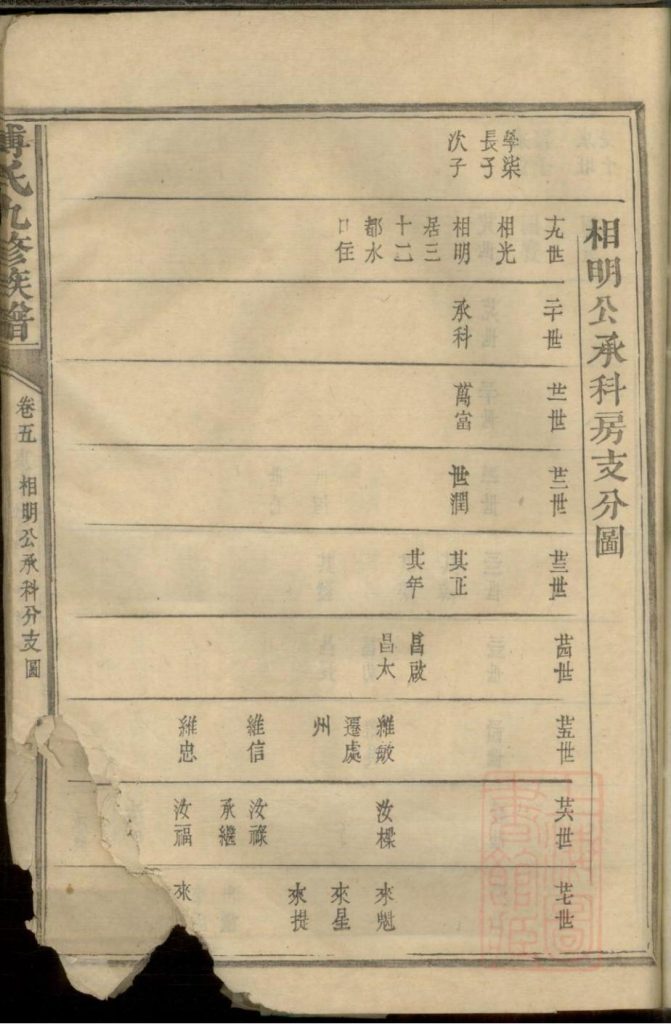 相明公承科房支分圖
學柒
長子
次子
十九世
相光
相明
居三
十二
都水
口住
二十世
承科
廿一世
萬富
廿二世
世潤
廿三世
其正
其年
廿四世
昌啟
昌太
廿五世
維敏
遷處
州
維信
維忠
廿六世
汝樑
汝祿
承繼
汝福
廿七世
來魁
來星
來提
來
傅氏九修族譜
卷五
相明公承科分支圖